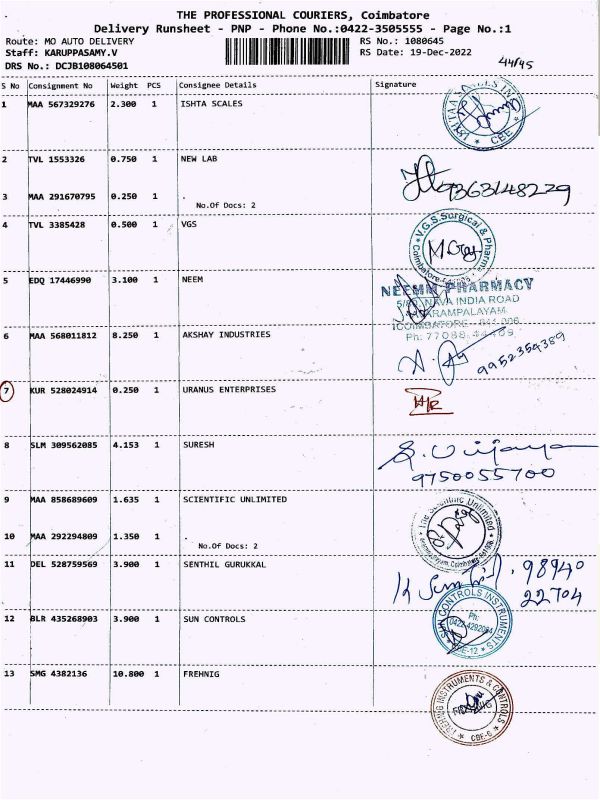 THE PROFESSIONAL COURIERS, Coimbatore
Delivery Runsheet - PNP - Phone No.:0422-3505555 - Page No.:1
Route: MO AUTO DELIVERY RS No.: 1080645
Staff: KARUPPASAMY.V RS Date: 19-Dec-2022
DRS No.: DCJB108064501 44/45
S No Consignment No Weight PCS Consignee Details Signature
1 MAA 567329276 2.300 1 ISHTA SCALES
CBE
2 TVL 1553326 0.750 1 NEW LAB
9363148229
3 MAA 291670795 0.250 1 .
No.Of Docs: 2
4 TVL 3385428 0.500 1 VGS
V.G.S. Surgical & Pharma
Coimbatore
5 EDQ 17446990 3.100 1 NEEM
NEEMM PHARMACY
NAVA INDIA ROAD
COIMBATORE
6 MAQ 568011812 8.250 1 AKSHAY INDUSTRIES
9952354389
7 KUR 528024914 0.250 1 URANUS ENTERPRISES
8 SLM 309562085 4.153 1 SURESH
9750055700
9 MAA 858689609 1.635 1 SCIENTIFIC UNLIMITED
The Scientific Unlimited
10 MAA 292294809 1.350 1 .
No.Of Docs: 2
11 DEL 528759569 3.900 1 SENTHIL GURUKKAL
98940
22704
12 BLR 435268903 3.900 1 SUN CONTROLS
SUN CONTROLS INSTRUMENTS
Ph:
13 SMG 4382136 10.800 1 FREHNIG
FREHNIG INSTRUMENTS & CONTROLS
CBE-6